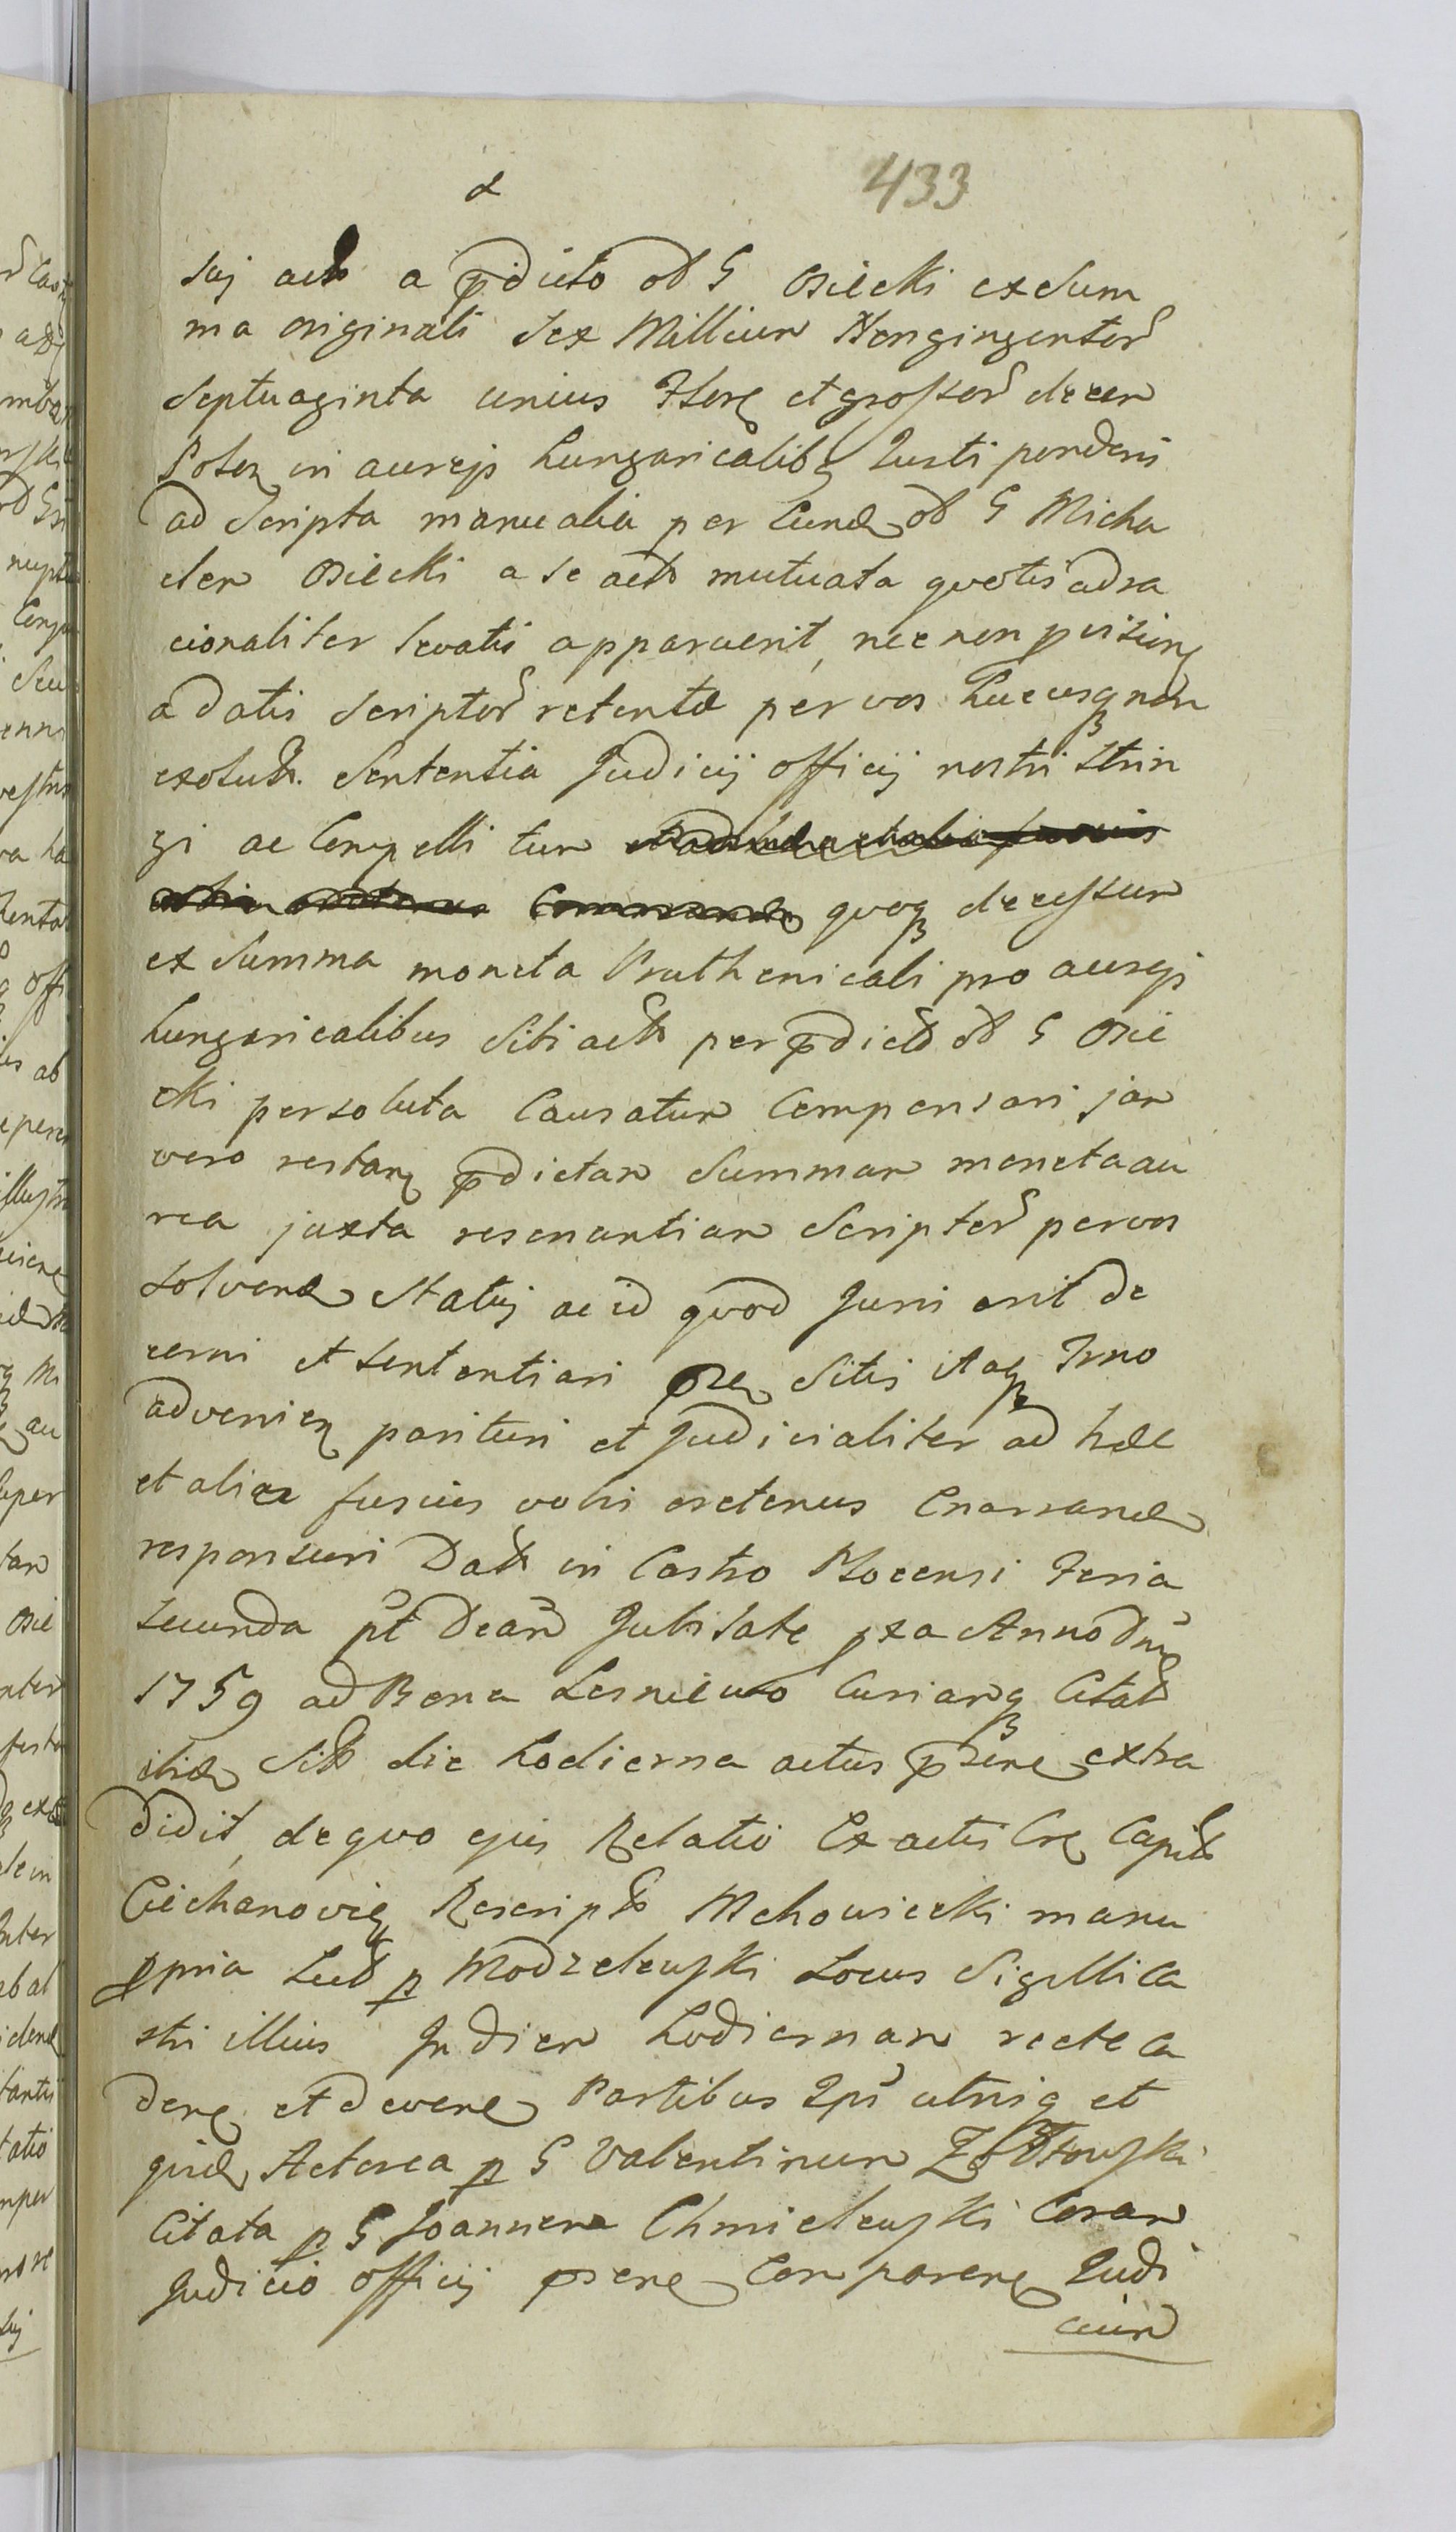 433
suj actr a prdicto od G Osiecki ex sum
ma originali sex Millium Nongingentor
septuaginta unius Flore et grossor decem
Polon in aureis hungaricalibq Iusti ponderis
ad scripta manualia per eund od G Micha
elem Osiecki a se actr mutuata quotis adra
cionaliter levatis apparuerit, nec non pvisione
a datis scriptor retenta per vos hucusq non
exolutr. sententia Judicij officij nostri strin
gi ac Compelli tum quoq decessum
ex summa moneta Pruthenicali pro aureis
hungaricalibus sibi actr per prdictd od G Osie
cki persoluta Causatum Compensari jam
vero restane prdictam summam moneta au
rea juxta resonantiam scriptor per vos
solvend statuj ac id quod Juris erit de
cerni et sententiari pre sitis itaq Trno
advenien parituri et Judicialiter ad hæc
et aliæ fusius vobis oretenus Enarrand
responsuri Datr in Castro Plocensi Feria
secunda pt Dcam Jubilate pxa Anno Dni
1759 ad Bona Lesniewo Curiamq Citatr
ibid sitr die hodierna actus prsene extra
didit, de quo ejus Relatio Ex actis Cre Capitr
Ciechanovie Rescriptr Mchowiecki manu
ppria Lect p Modzelewski Locus Sigilli Ca
stri illius In diem hodiernam recte ca
den et deven Partibus Ipis utrisq et
quid Actorea p G Valentinum Zołtowski
Citata p G Joannem Chmielewski Coram
Judicio officij prsene Comparen Judi
cium